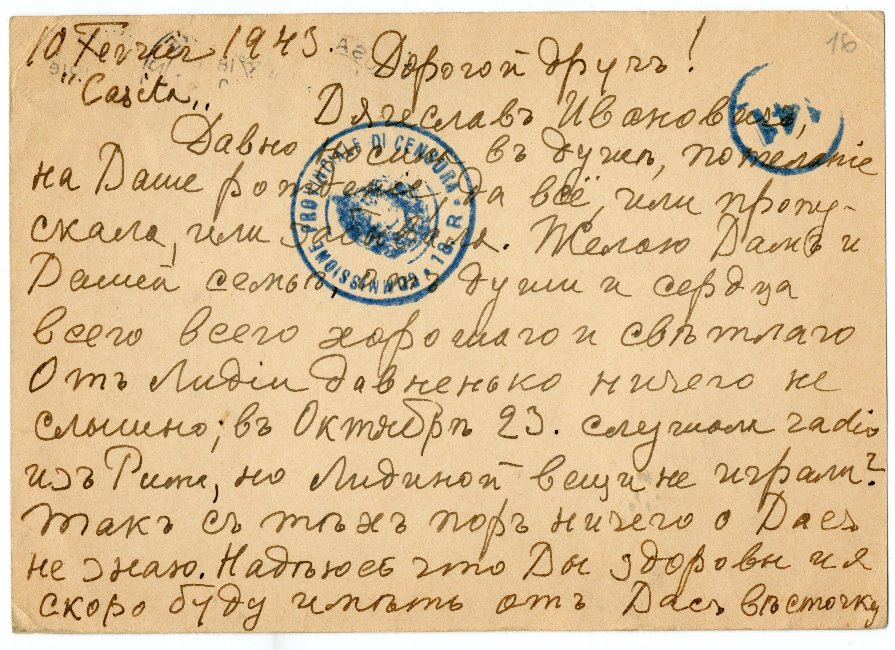 10 Fevrier 1943.
"Casetta„
Дорогой другъ!
Вячеславъ Ивановичъ,
Давно носила въ душѣ, пожеланіе
на Ваше рожденіе, да всё, или пропу-
скала, или
Желаю Вамъ и
Вашей семьѣ, отъ души и сердца
всего всего хорошаго и свѣтлаго
Отъ Лидіи давненько ничего не
слышно; въ Октябрѣ 23. слушали radio
изъ Рима, но Лидиной вещи не играли?
Такъ съ тѣхъ поръ ничего о Васъ
не знаю. Надѣюсь что Вы здоровы и я
скоро буду имѣть отъ Васъ вѣсточку
COMMISSIONE PROVINCIALE DI CENSURA * 18.R *
16